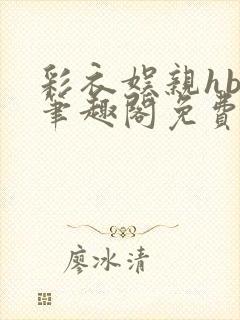 彩衣娱亲hb
笔趣阁免费
廖冰清